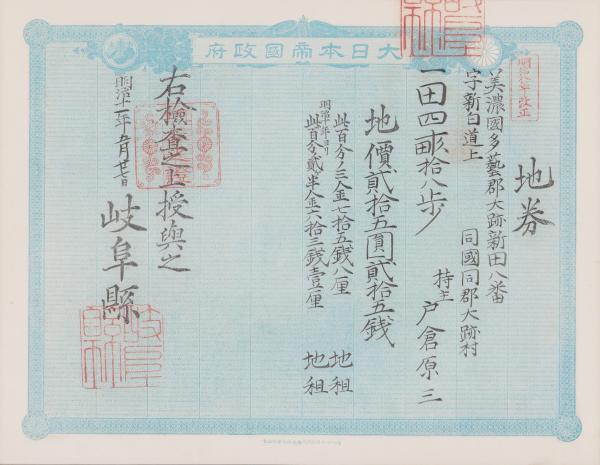 大日本帝國政府
明治八年改正
地券
美濃國多藝郡大跡新田八番
字新白道上
同國同郡大跡村
持主 户倉原三
一田四畝拾八歩
地價貳拾五圓貳拾五銭
此百分ノ三金七拾五銭八厘 地租
明治十年ヨリ
此百分貳半金六拾三銭壹厘 地租
右檢査之上授與之
明治十一年五月廿七日
岐阜縣